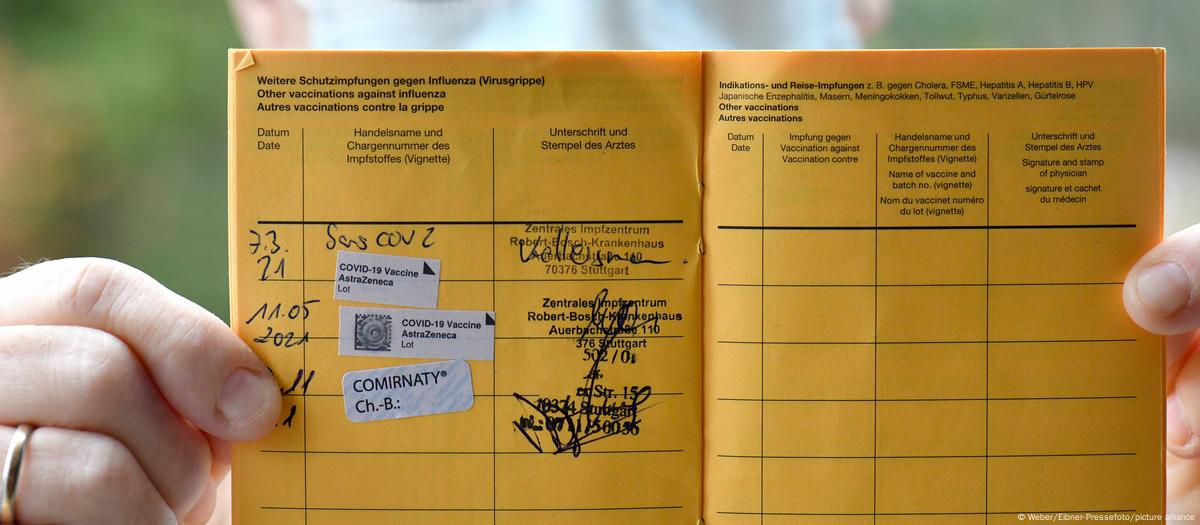 Weitere Schutzimpfungen gegen Influenza (Virusgrippe)
Other vaccinations against influenza
Autres vaccinations contre la grippe
Datum
Date
Handelsname und
Chargennummer des
Impfstoffes (Vignette)
Unterschrift und
Stempel des Arztes
7.3.
21
Sars COV 2
COVID-19 Vaccine
AstraZeneca
Lot
Zentrales Impfzentrum
Robert-Bosch-Krankenhaus
Auerbachstraße 110
70376 Stuttgart
11.05
2021
COVID-19 Vaccine
AstraZeneca
Lot
Zentrales Impfzentrum
Robert-Bosch-Krankenhaus
Auerbachstraße 110
376 Stuttgart
.11
.1
COMIRNATY®
Ch.-B.:
Str. 15
70374 Stuttgart
Indikations- und Reise-Impfungen z. B. gegen Cholera, FSME, Hepatitis A, Hepatitis B, HPV
Japanische Enzephalitis, Masern, Meningokokken, Tollwut, Typhus, Varizellen, Gürtelrose
Other vaccinations
Autres vaccinations
Datum
Date
Impfung gegen
Vaccination against
Vaccination contre
Handelsname und
Chargennummer des
Impfstoffes (Vignette)
Name of vaccine and
batch no. (vignette)
Nom du vaccinet numéro
du lot (vignette)
Unterschrift und
Stempel des Arztes
Signature and stamp
of physician
signature et cachet
du médecin
© Weber/Eibner-Pressefoto/picture alliance